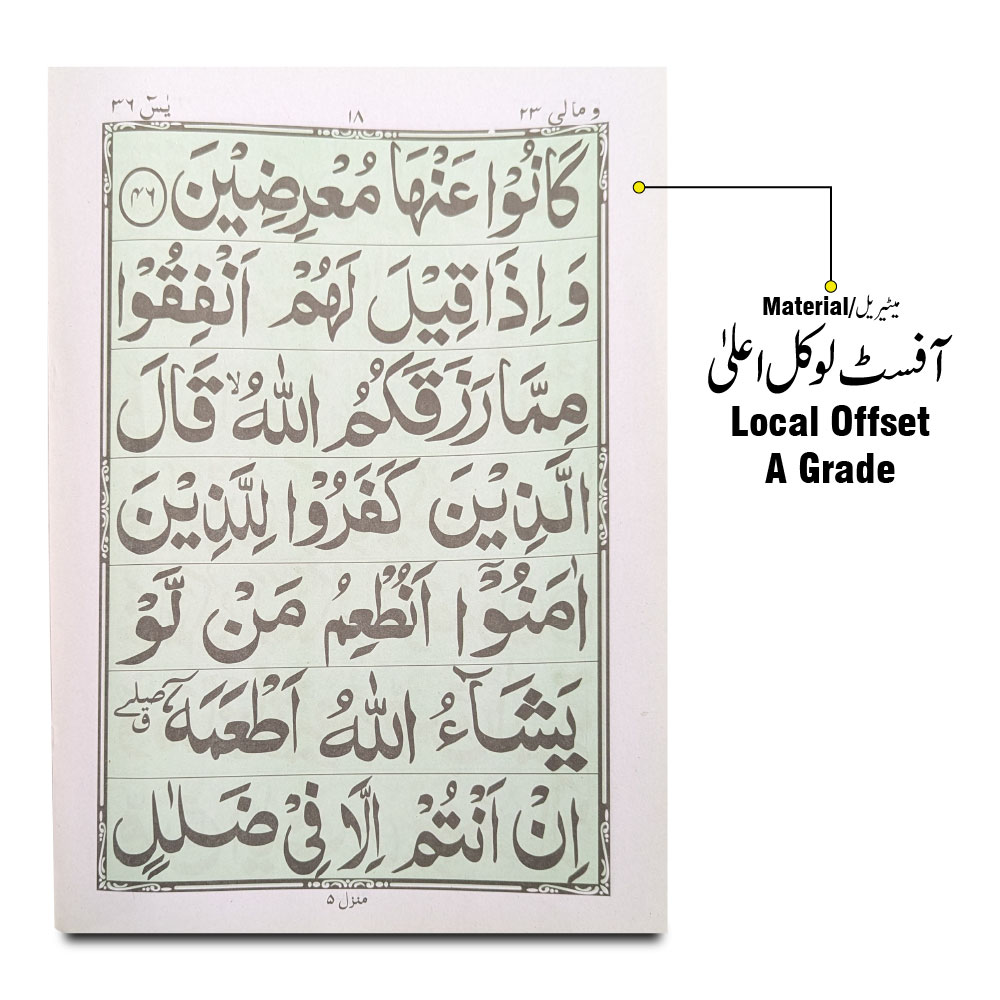 و مالی ۲۳ ۱۸ یٰسٓ ۳۶
كَانُوْا عَنْهَا مُعْرِضِيْنَ ﴿۴۶﴾
وَ اِذَا قِيْلَ لَهُمْ اَنْفِقُوْا
مِمَّا رَزَقَكُمُ اللّٰهُ ۙ قَالَ
الَّذِيْنَ كَفَرُوْا لِلَّذِيْنَ
اٰمَنُوْۤا اَنُطْعِمُ مَنْ لَّوْ
يَشَآءُ اللّٰهُ اَطْعَمَهٗۤ ۖ ق
اِنْ اَنْتُمْ اِلَّا فِيْ ضَلٰلٍ
منزل ۵
Material/میٹیریل
آفسٹ لوکل اعلیٰ
Local Offset
A Grade